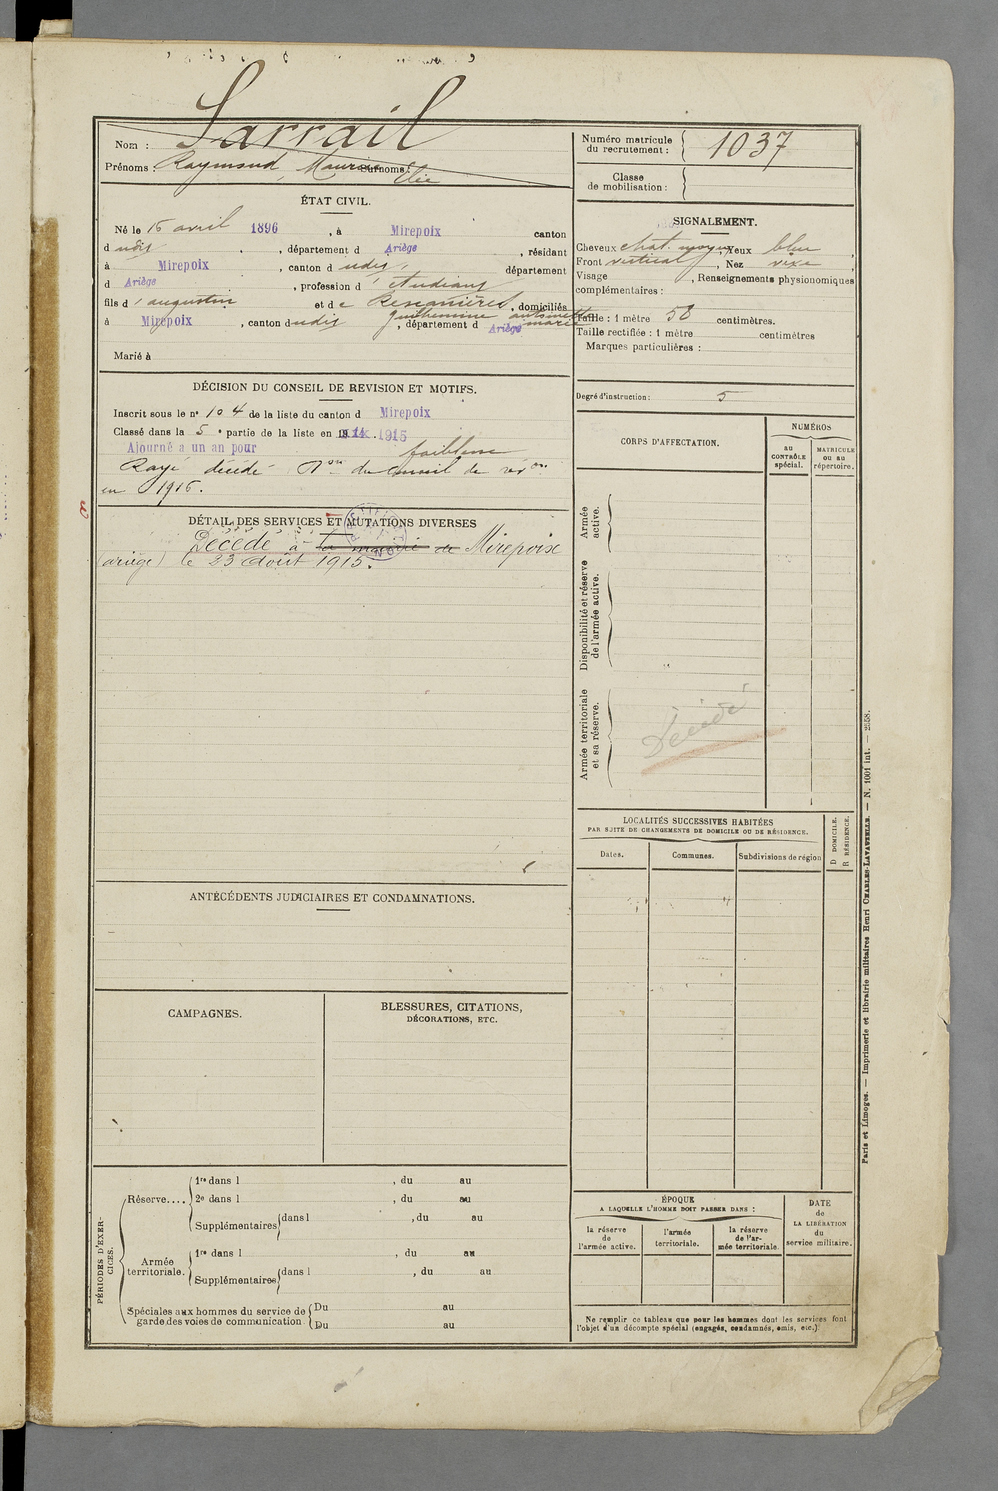 Sarrail
Nom :
Prénoms : Raymond, Maurice Surnoms : Elie
Numéro matricule du recrutement : 1037
Classe de mobilisation :
ÉTAT CIVIL.
Né le 15 avril 1896, à Mirepoix canton
d udis, département d Ariège, résidant
à Mirepoix, canton d udis, département
d Ariège, profession d'étudiant
fils d'augustin et de Rescanières, domiciliés
guilhemine antoinette marie
à Mirepoix, canton d udis, département d Ariège
Marié à
SIGNALEMENT.
Cheveux chat. moyen, Yeux bleu,
Front vertical, Nez,
Visage, Renseignements physionomiques
complémentaires :
Taille : 1 mètre 58 centimètres.
Taille rectifiée : 1 mètre centimètres
Marques particulières :
Degré d'instruction : 5
DÉCISION DU CONSEIL DE REVISION ET MOTIFS.
Inscrit sous le n° 104 de la liste du canton d Mirepoix
Classé dans la 5e partie de la liste en 1915
Ajourné a un an pour faiblesse
Rayé décédé Don du Conseil de révon
en 1916.
DÉTAIL DES SERVICES ET MUTATIONS DIVERSES
Décédé à la mairie de Mirepoix
(ariège) le 23 Août 1915.
CORPS D'AFFECTATION.
NUMÉROS
AU CONTRÔLE spécial.
MATRICULE ou au répertoire.
Armée active.
Disponibilité et réserve de l'armée active.
Armée territoriale et sa réserve.
Décédé
LOCALITÉS SUCCESSIVES HABITÉES
PAR SUITE DE CHANGEMENTS DE DOMICILE OU DE RÉSIDENCE.
Dates.
Communes.
Subdivisions de région
D DOMICILE.
R RÉSIDENCE.
ANTÉCÉDENTS JUDICIAIRES ET CONDAMNATIONS.
CAMPAGNES.
BLESSURES, CITATIONS,
DÉCORATIONS, ETC.
PÉRIODES D'EXERCICES.
Réserve....
1re dans l , du au
2e dans l , du au
Supplémentaires dans l , du au
Armée territoriale.
1re dans l , du au
Supplémentaires dans l , du au
Spéciales aux hommes du service de
garde des voies de communication.
Du au
Du au
ÉPOQUE
A LAQUELLE L'HOMME DOIT PASSER DANS :
la réserve de l'armée active.
l'armée territoriale.
la réserve de l'armée territoriale.
DATE
de
LA LIBÉRATION
du
service militaire.
Ne remplir ce tableau que pour les hommes dont les services font
l'objet d'un décompte spécial (engagés, condamnés, omis, etc.)
Paris et Limoges. — Imprimerie et librairie militaires Henri CHARLES-LAVAUZELLE. — N. 1001 int. — 2558.